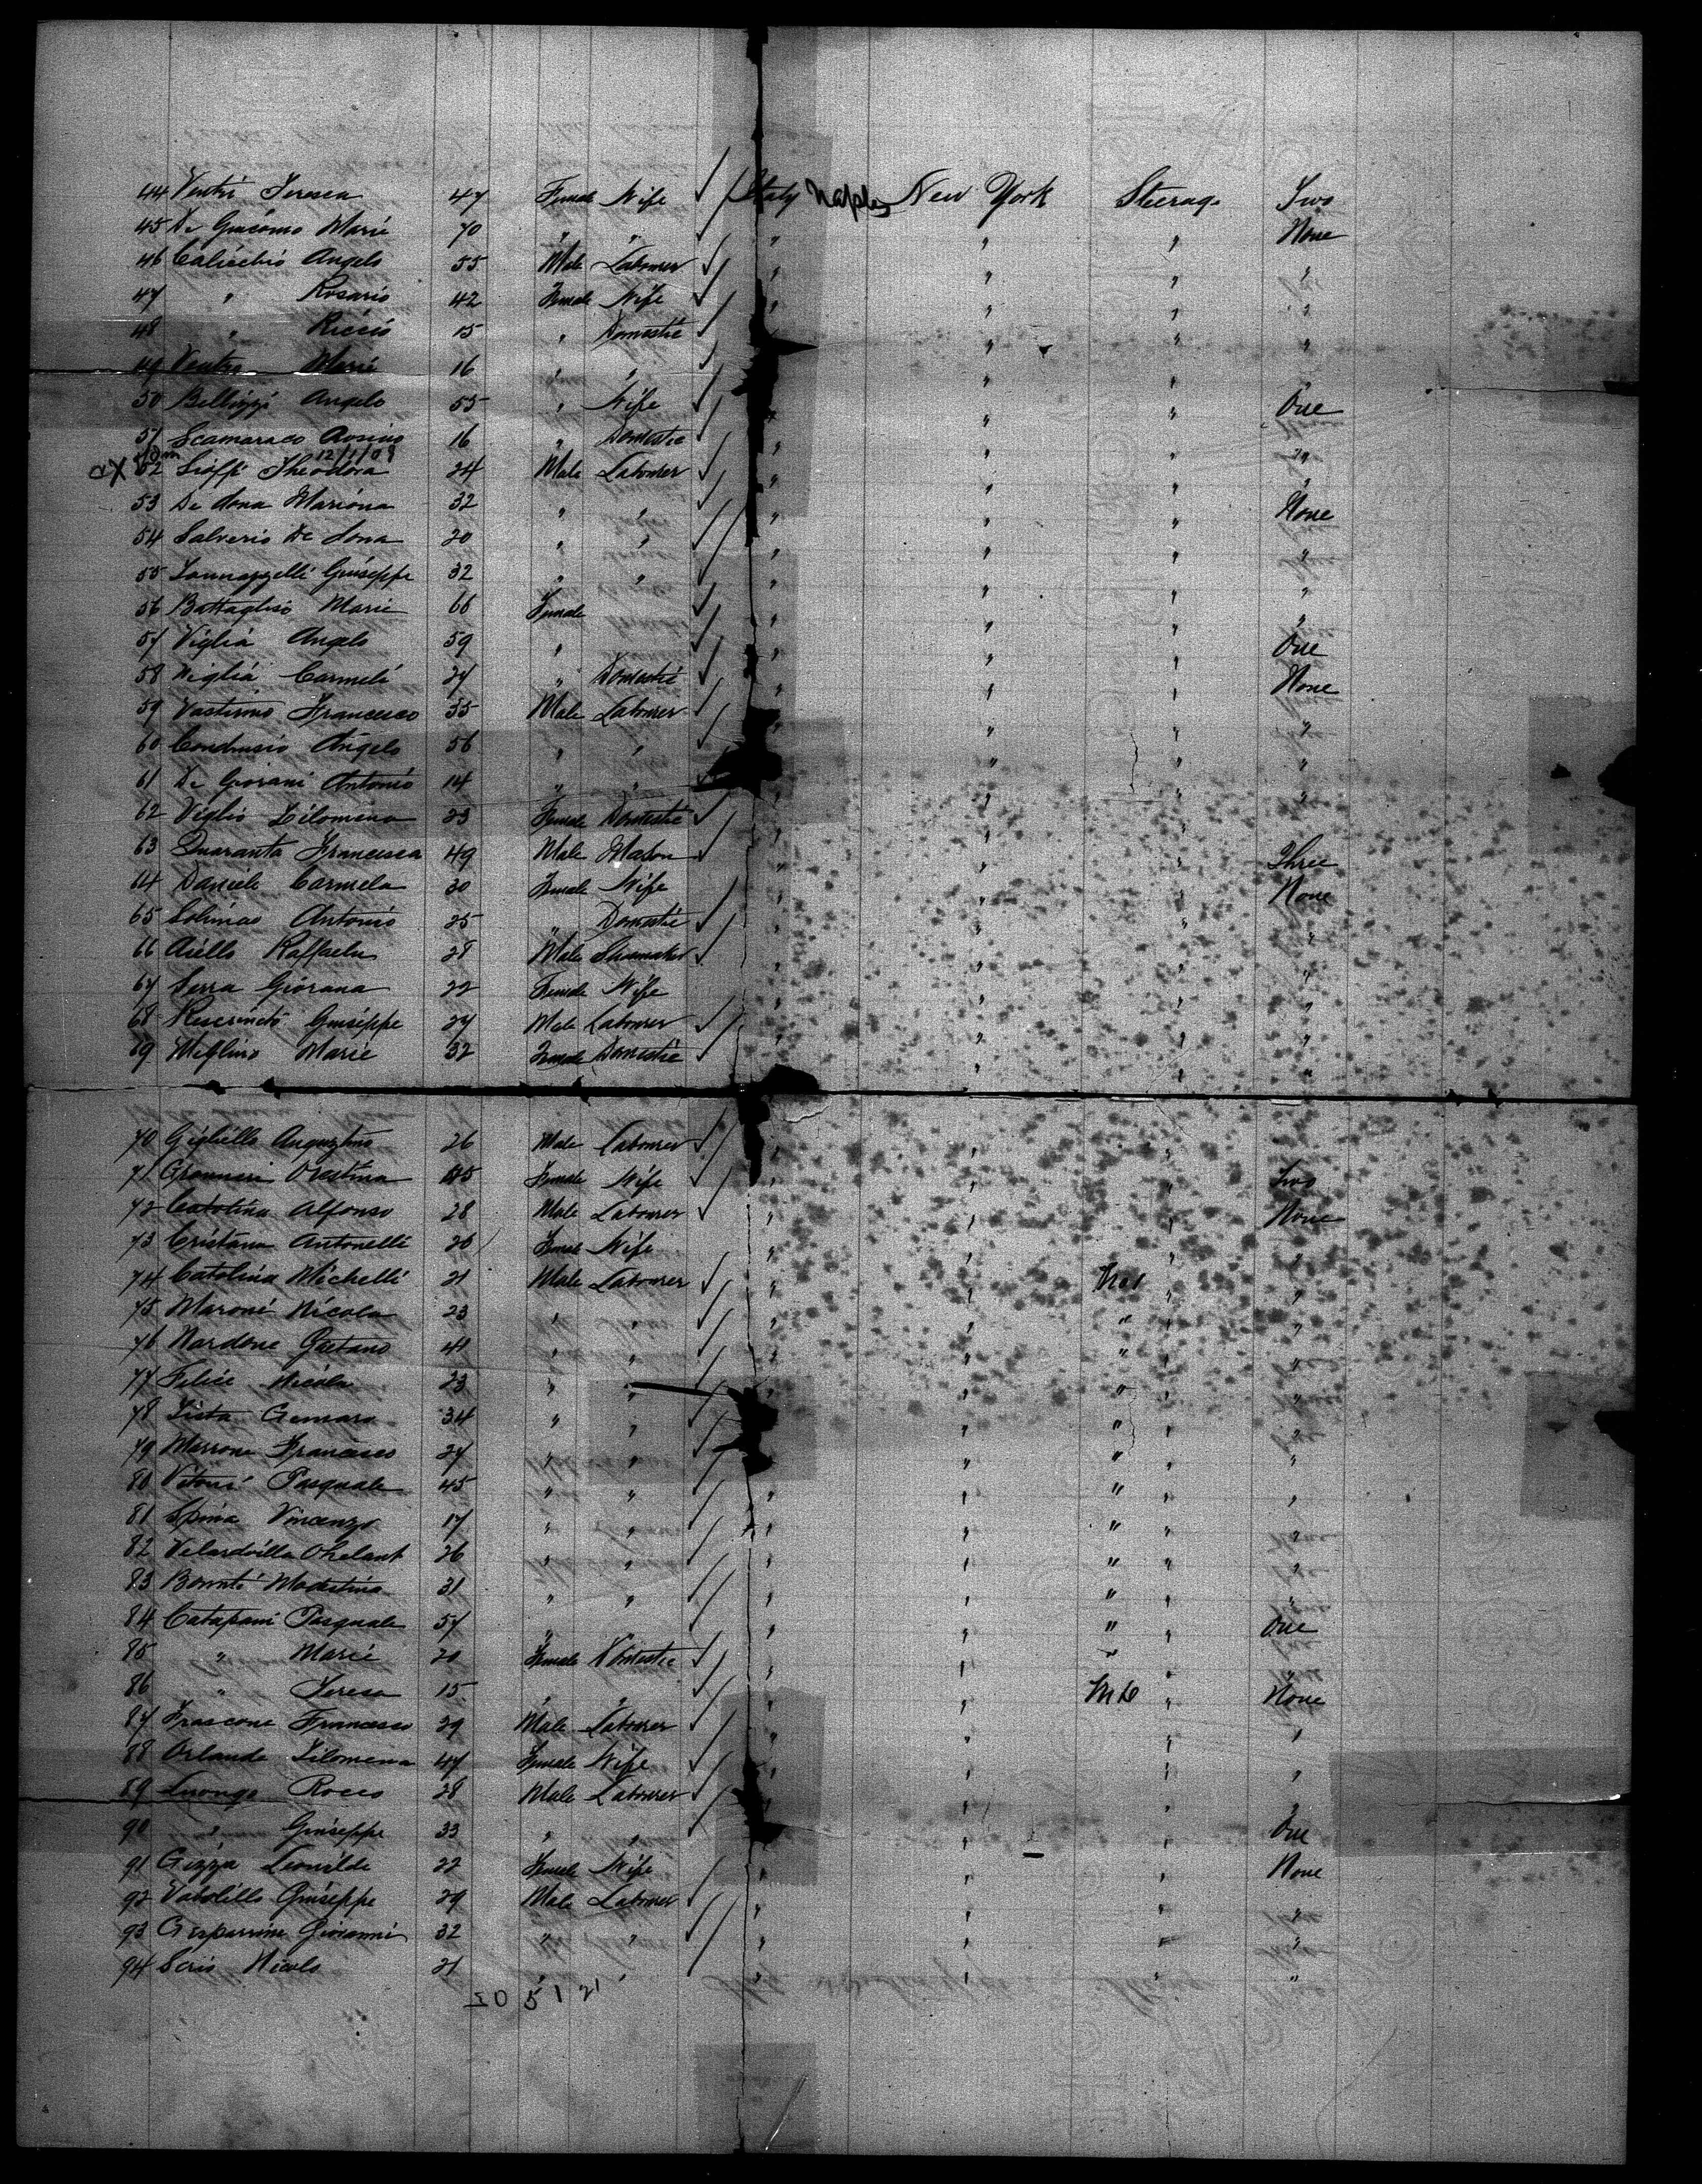 44 Ventri Teresa 47 Female Wife Italy Naples New York Steerage Two
45 De Giacomo Marie 70 " " " " " None
46 Calicchio Angelo 55 Male Labourer " " " "
47 " Rosario 42 Female Wife " " " "
48 " Riccio 15 " Domestic " " "
49 Ventre Marie 16 " " " " "
50 Bellizzi Angelo 55 " Wife " " " One
51 Scamaraco 16 " Domestic " " " "
12/1/09
52 Theodora 24 Male Labourer " " " "
53 De dona Mariona 32 " " " " " None
54 Salverio De dona 20 " " " " " "
55 Giuseppe 32 " " " " " "
56 Battaglino Marie 66 Female " " " "
57 Viglia Angelo 59 " " " " One
58 Viglia Carmeli 27 " Domestic " " " None
59 Francesco 35 Male Labourer " " " "
60 Angelo 56 " " " " " "
61 De Giovani Antonio 14 " " " " " "
62 Viglio Filomena 23 Female Domestic " " "
63 Quaranta Francesca 49 Male Mason " " " Three
64 Daniele Carmela 30 Female Wife " " " None
65 Solimao Antonio 25 " Domestic " " " "
66 Aiello Raffaela 28 Male Shoemaker " " " "
67 Serra Giovana 22 Female Wife " " " "
68 Giuseppe 27 Male Labourer " " " "
69 Miglino Marie 32 Female Domestic " " "
70 Gigliello Augustino 26 Male Labourer " "
71 Orestina 45 Female Wife " " " Two
72 Catolina Alfonso 28 Male Labourer " " " None
73 Cristana Antonelli 26 Female Wife " " " "
74 Catolina Michelli 21 Male Labourer " " " "
75 Maroni Nicola 23 " " " " " " "
76 Nardone Gaetano 41 " " " " " " "
77 Felice Nicola 23 " " " " " " "
78 Lista Gennaro 34 " " " " " "
79 Marrone Francesco 27 " " " " " "
80 Vitoni Pasquale 45 " " " " " " "
81 Spina Vincenzo 17 " " " " " " "
82 26 " " " " " " "
83 Modestina 31 " " " " " " "
84 Catapani Pasquale 57 " " " " " " One
85 " Marie 20 Female Domestic " " " " "
86 " Teresa 15 " " " " " None
87 Frascone Francesco 29 Male Labourer " " " "
88 Orlando Filomena 47 Female Wife " " " "
89 Luongo Rocco 28 Male Labourer " " " "
90 " Giuseppe 33 " " " " " One
91 Gizza Leonilde 22 Female Wife " " " None
92 Giuseppe 29 Male Labourer " " " "
93 Gesparrine Giovanni 32 " " " " " "
94 Nicolo 21 " " " " " "